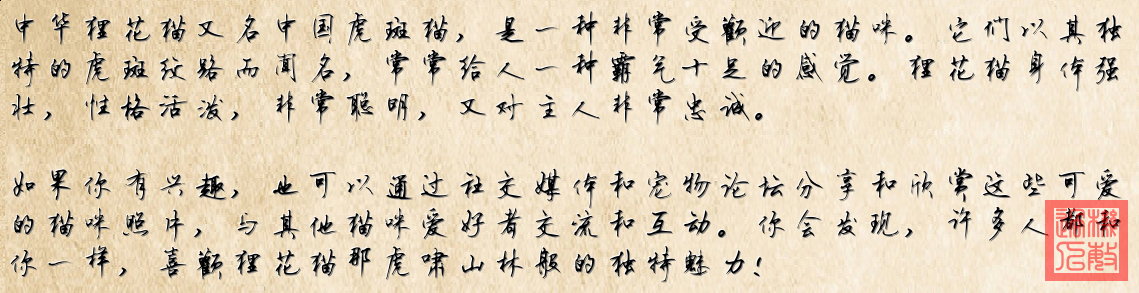 中华狸花猫又名中国虎斑猫，是一种非常受欢迎的猫咪。它们以其独
特的虎斑纹路而闻名，常常给人一种霸气十足的感觉。狸花猫身体强
壮，性格活泼，非常聪明，又对主人非常忠诚。
如果你有兴趣，也可以通过社交媒体和宠物论坛分享和欣赏这些可爱
的猫咪照片，与其他猫咪爱好者交流和互动。你会发现，许多人都和
你一样，喜欢狸花猫那虎啸山林般的独特魅力！